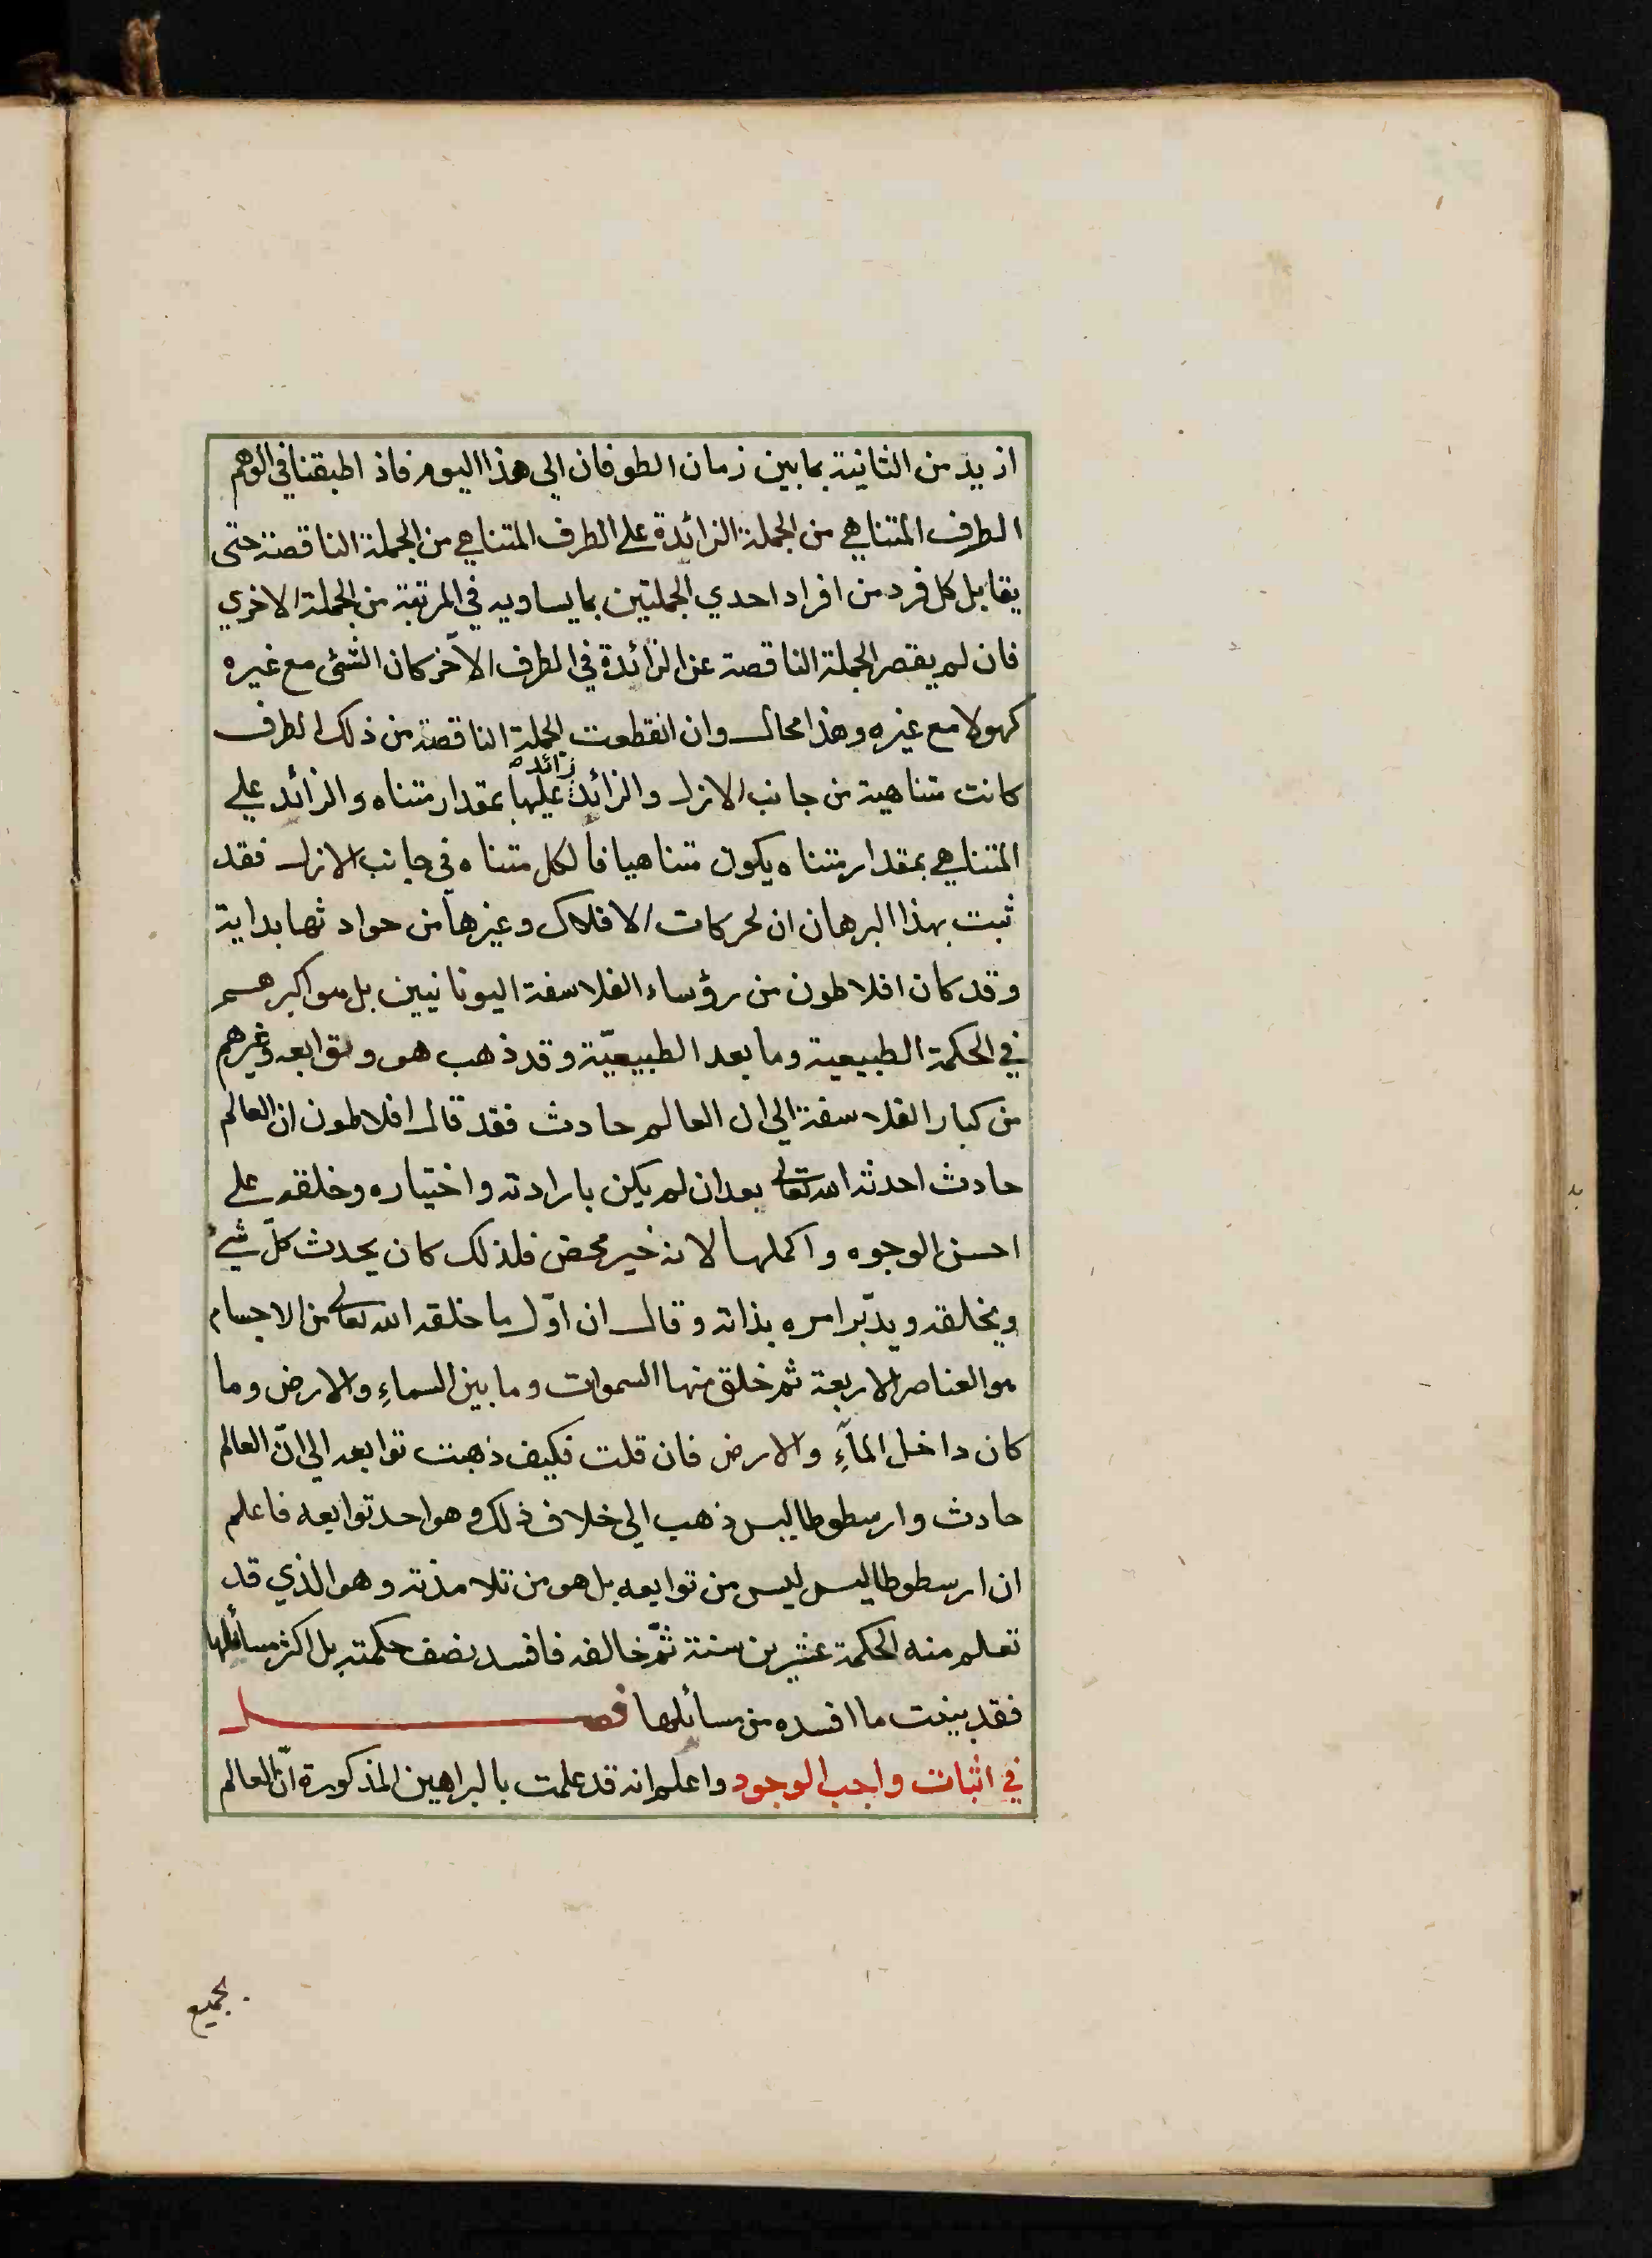 ازيد من الثانية بما بين زمان الطوفان الي هذا اليوم فاذ اطبقنا في الوهم
الطرف المتناهي من الجملة الزائدة علي الطرف المتناهي من الجملة الناقصة حتى
يقابل كل فرد من افراد احدي الجملتين بما يساويه في المرتبة من الجملة الاخري
فان لم يقصر الجملة الناقصة عن الزائدة في الطرف الآخر كان الشئ مع غيره
كهولا مع غيره وهذا محال وان انقطعت الجملة الناقصة من ذلك الطرف
كانت متناهية من جانب الازل والزائدة زائدة عليها بمقدار متناه والزائد علي
المتناهي بمقدار متناه يكون متناهيا فالكل متناه في جانب الازل فقد
ثبت بهذا البرهان ان لحركات الافلاك وغيرها من حوادثها بداية
وقد كان افلاطون من رؤساء الفلاسفة اليونانيين بل هو اكبرهم
في الحكمة الطبيعية وما بعد الطبيعيّة وقد ذهب هو وتوابعه وغيرهم
من كبار الفلاسفة الي ان العالم حادث فقد قال افلاطون ان العالم
حادث احدثه الله تعالى بعد ان لم يكن بارادته واختياره وخلقه علي
احسن الوجوه واكملها لانه خير محض فلذلك كان يحدث كلّ شيء
ويخلقه ويدبّر امره بذاته وقال ان اوّل ما خلقه الله تعالى من الاجسام
هو العناصر الاربعة ثم خلق منها السموات وما بين السماءِ والارض وما
كان داخل المآءِ والارض فان قلت فكيف ذهبت توابعه الي انّ العالم
حادث وارسطوطاليس ذهب الي خلاف ذلك وهو احد توابعه فاعلم
ان ارسطوطاليس ليس من توابعه بل هو من تلامذته وهو الذي قد
تعلم منه الحكمة عشرين سنة ثمّ خالفه فافسد نصف حكمته بل اكثر مسائلها
فقد بينت ما افسده من مسائلها فصل
في اثبات واجب الوجود واعلم انه قد علمت بالبراهين المذكورة انّ العالم
بجميع